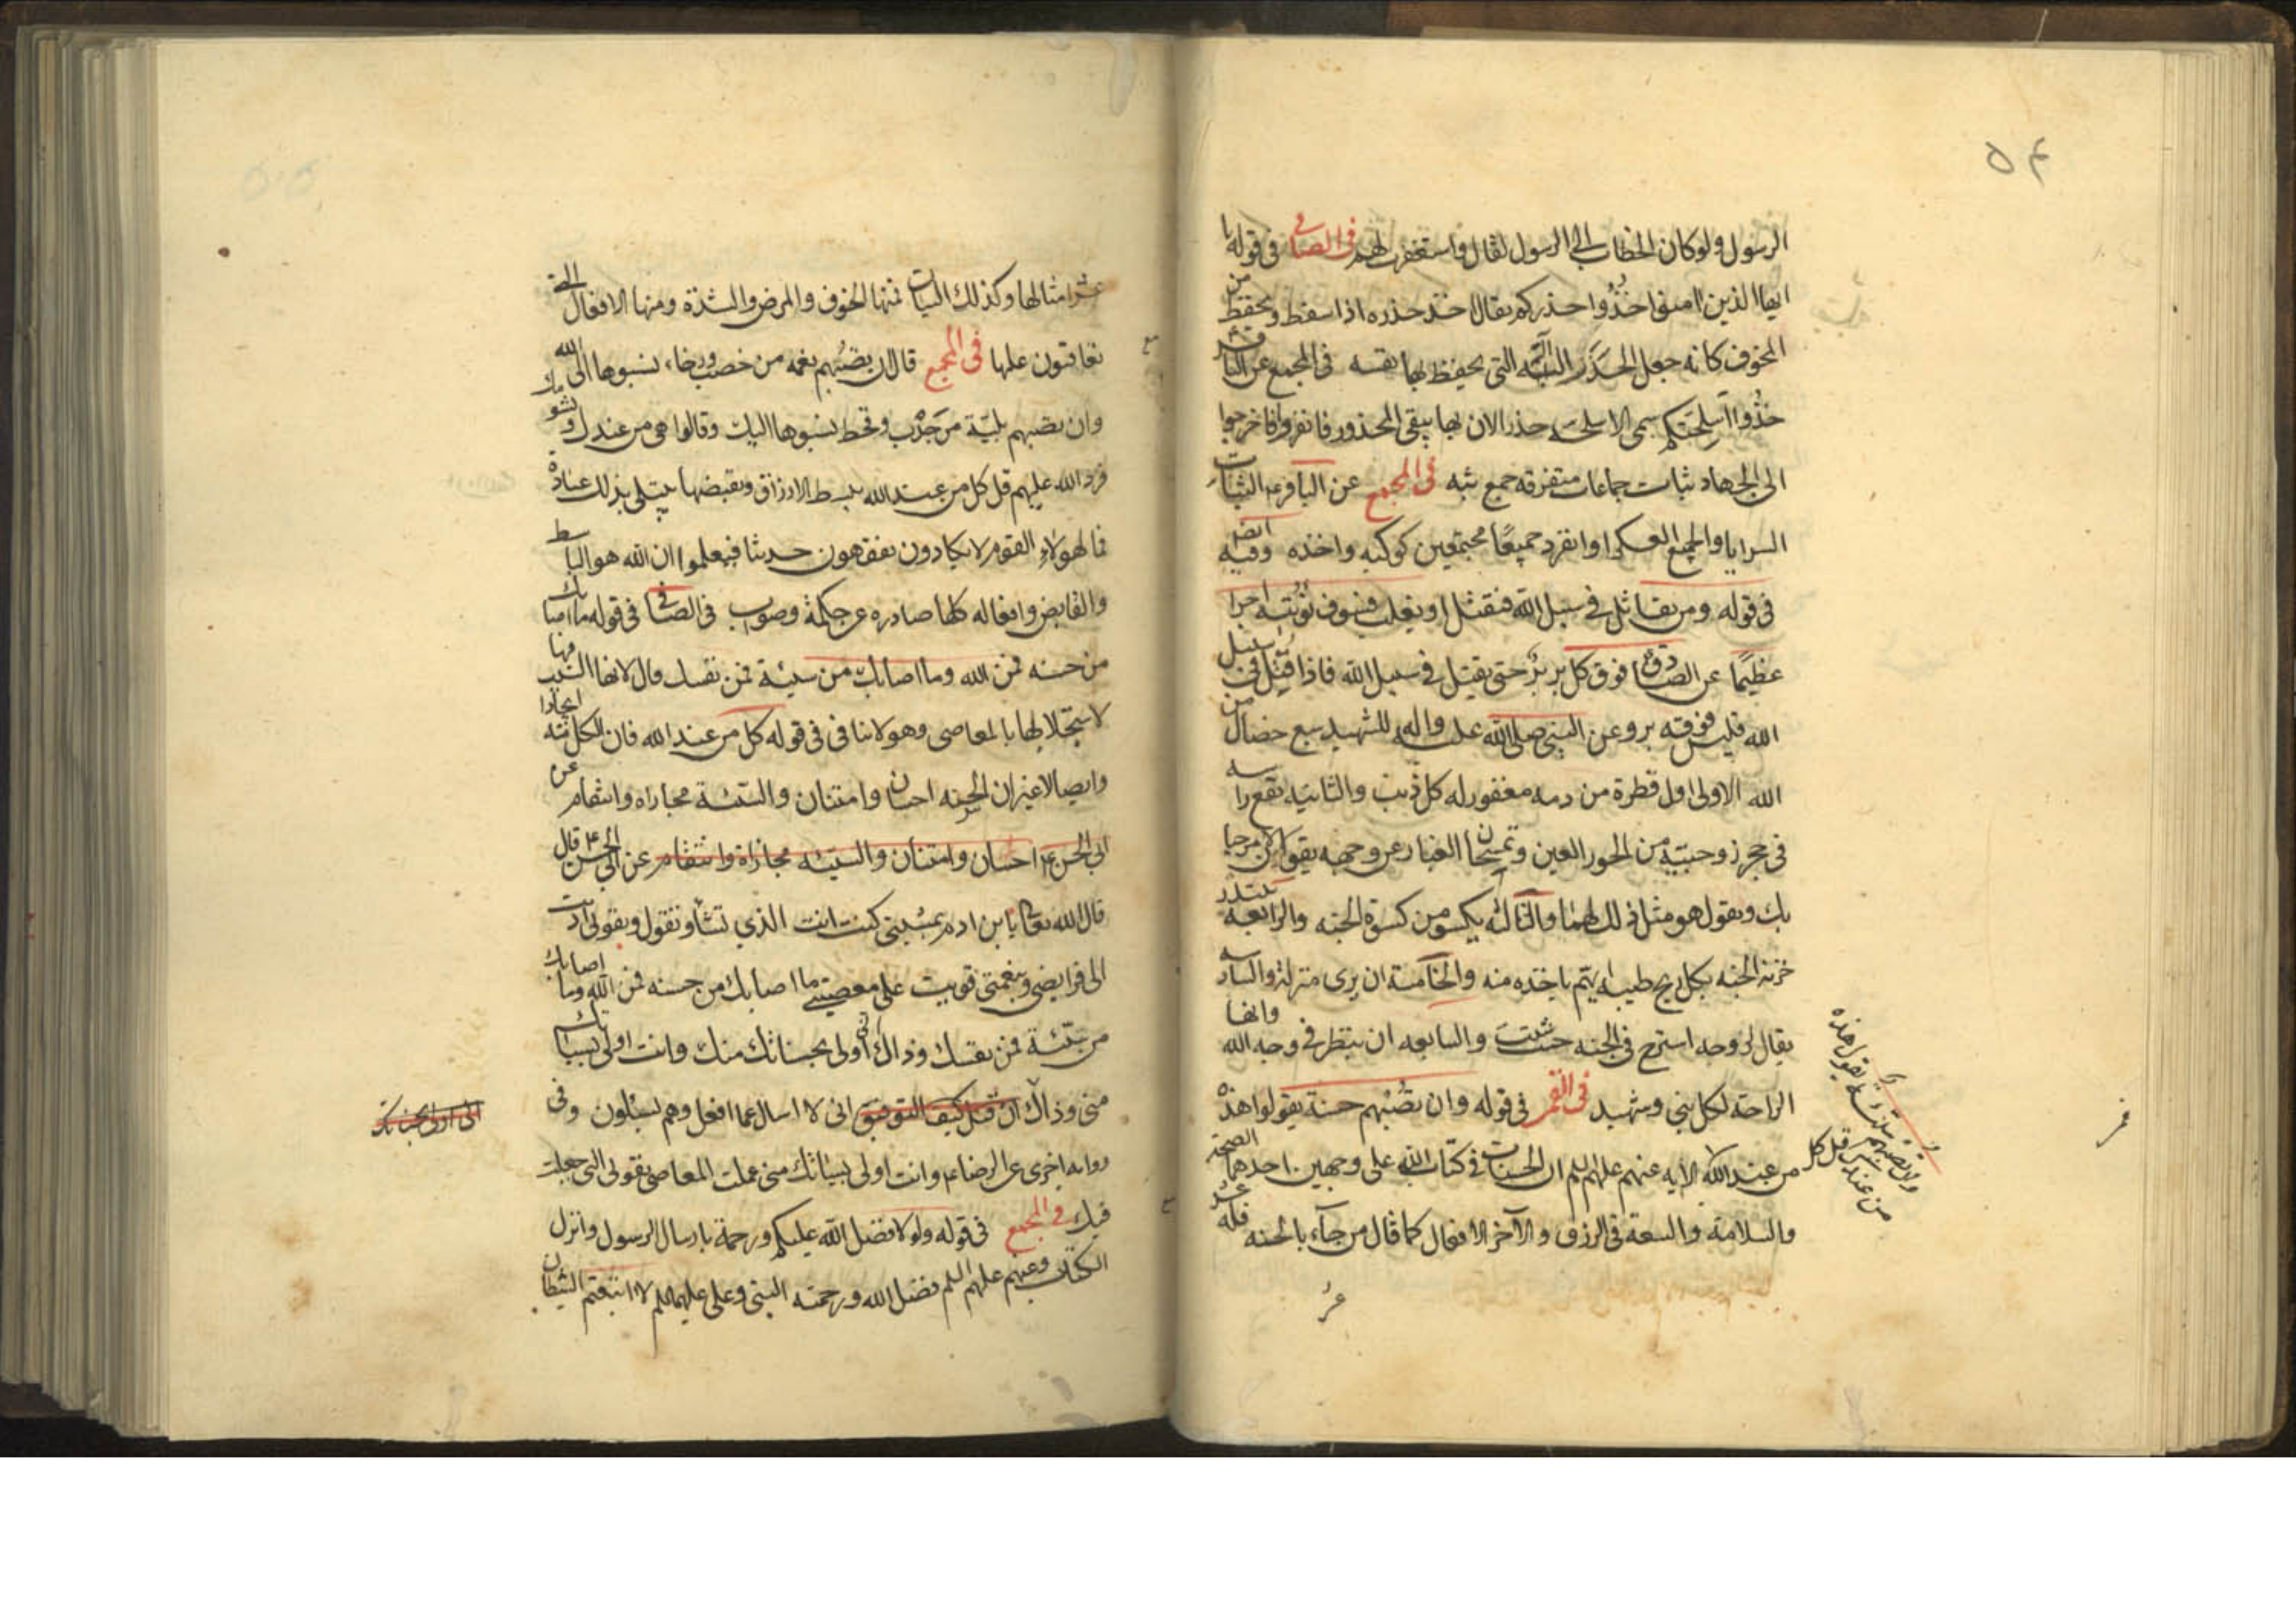 ۵۴
الرسول ولو كان الخطاب الى الرسول لقال واستغفرت لهم فى الصافى فى قوله يا
ايها الذين امنوا خُذُوا حذركم يقال اخذ حذره اذا سقط وتحفظ من
المخوف كانه جعل الحَذَر التى يحفظ بها نفسه فى المجمع عن الباقر
خُذوا اسلحَتكم سمى الاسلحه حذر الان بها يتقى المحذور فانفروا فاخرجوا
الى الجهاد ثبات جماعات متفرقه جمع ثبه فى المجمع عن الباقر ع الثبات
السرايا والجميع العسكر او انفرد جميعًا مجتمعين كوكبه واخذه وفيه ايضا
فى قوله ومن يقاتل فى سبيل الله فيقتل او يغلب فسوف نؤتيه اجرا
عظيمًا عن الصادق فوق كل بر برٌ حتى يقتل فى سبيل الله فاذا قُتِل فى سبيل
الله فليس فوقه بر وعن النبى صلى الله عليه واله للشهيد سبع خصال من
الله الاولى اول قطرة من دمه مغفور له كل ذنب والثانيه يقع راسه
فى حجر زوجتيه من الحور العين وتمسحان الغبار عن وجهه يقولان مرحبا
بك ويقول هو مثل ذلك لهما والثالثه يكسى من كسوة الجنه والرابعه يبتدر
خزنه الجنه بكل ريح طيبه ايهم ياخذه منه والخامسة ان يرى منزله والسادسه
يقال لروحه استرح فى الجنه حيث شئت والسابعه ان ينظر فى وجه الله وانها
الراحة لكل نبى وشهيد فى القمى فى قوله وان تُصِبْهم حسنة يقولوا هذه
من عند الله الايه عنهم عليهم السلم ان الحسنات فى كتاب الله على وجهين احدهما الصحة
والسلامة والسعة فى الرزق والآخر الافعال كما قال من جآء بالحسنه فله عشر
وان تصبهم سيئة يقول هذه
من عندك قل كل
عشر امثالها وكذلك السيات فمنها الخوف والمرض والشدة ومنها الافعال التى
يعاقبون عليها فى المجمع قال ان يصبهم نعمه من خصب ورخاء نسبوها الى الله
وان تصبهم بليّة من جَدْب وقحط نسبوها اليك وقالوا هى من عندك
فرد الله عليهم قل كل من عند الله يبسط الارزاق ويقبضها يبتلى بذلك عباده
فما لهولاء القوم لا يكادون يفقهون حديثا فيعلموا ان الله هو الباسط
والقابض وافعاله كلها صادره عن حكمة وصوب فى الصافى فى قوله ما اصابك
من حسنه فمن الله وما اصابك من سيئة فمن نفسك قال لانها السبب فيها
لاستجلابها بالمعاصى وهو لا ينافى فى قوله كل من عند الله فان الكل منه ايجادا
وايصالا غير ان الحسنه احسان وامتنان والسيئة مجازاه وانتقام عن
ابى الحسن ع احسان وامتنان والسيئه مجازاة وانتقام عن ابى الحسن ع قال
قال الله تعالى يابن ادم بمشيتى كنت انت الذي تشأ وتقول وبقوتى اديت
الى فرايضى وبنعمتى قويت على معصيتى ما اصابك من حسنه فمن الله وما اصابك
من سيئة فمن نفسك وذاك انى اولى بحسناتك منك وانت اولى بسيئاتك
منى وذاك ان قيل كيف التوفيق انى لا اسال عما افعل وهم يسئلون وفى
انى اولى بحسناتك
روايه اخرى عن الرضا ع وانت اولى بسيئاتك منى عملت المعاصى بقوتى التى جعلت
فيك فى المجمع فى قوله ولولا فضل الله عليكم ورحمة بارسال الرسول وانزل
الكتاب وعنهم عليهم السلم فضل الله ورحمته النبى وعلى عليهما السلم لا اتبعتم الشيطان